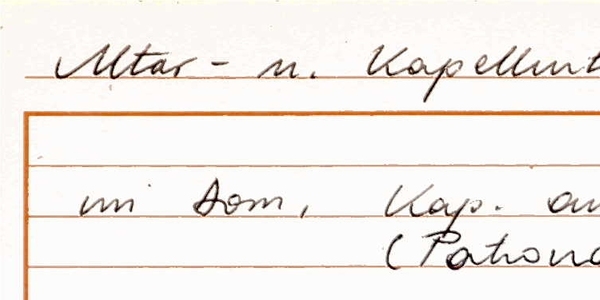 Altar- u. Kapellent
im Dom, Kap. an
(Patrona